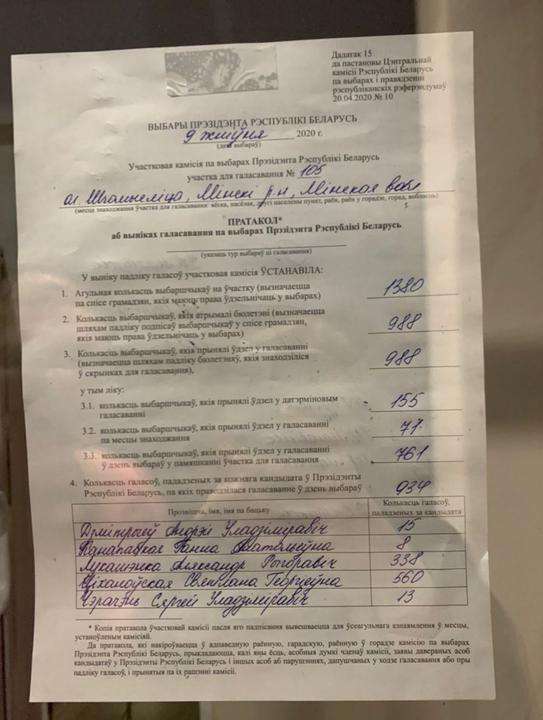 Дадатак 15
да пастановы Цэнтральнай
камісіі Рэспублікі Беларусь
па выбарах і правядзенні
рэспубліканскіх рэферэндумаў
20.04.2020 № 10
ВЫБАРЫ ПРЭЗІДЭНТА РЭСПУБЛІКІ БЕЛАРУСЬ
9 жніўня 2020 г.
(дата выбараў)
Участковая камісія па выбарах Прэзідэнта Рэспублікі Беларусь
участка для галасавання № 105
аг Шчомысліца, Мінскі р-н, Мінская вобл
(месца знаходжання ўчастка для галасавання: вёска, пасёлак, другі населены пункт, раён, раён у горадзе, горад, вобласць)
ПРАТАКОЛ*
аб выніках галасавання на выбарах Прэзідэнта Рэспублікі Беларусь
(указаць тур выбараў ці галасавання)
У выніку падліку галасоў участковая камісія ЎСТАНАВІЛА:
1. Агульная колькасць выбаршчыкаў на ўчастку (вызначаецца 1380
па спісе грамадзян, якія маюць права ўдзельнічаць у выбарах)
2. Колькасць выбаршчыкаў, якія атрымалі бюлетэні (вызначаецца
шляхам падліку подпісаў выбаршчыкаў у спісе грамадзян, 988
якія маюць права ўдзельнічаць у выбарах)
3. Колькасць выбаршчыкаў, якія прынялі ўдзел у галасаванні
(вызначаецца шляхам падліку бюлетэняў, якія знаходзіліся 988
ў скрынках для галасавання),
у тым ліку:
3.1. колькасць выбаршчыкаў, якія прынялі ўдзел у датэрміновым 155
галасаванні
3.2. колькасць выбаршчыкаў, якія прынялі ўдзел у галасаванні 77
па месцы знаходжання
3.3. колькасць выбаршчыкаў, якія прынялі ўдзел у галасаванні 761
ў дзень выбараў у памяшканні ўчастка для галасавання
4. Колькасць галасоў, пададзеных за кожнага кандыдата ў Прэзідэнты
Рэспублікі Беларусь, па якіх праводзілася галасаванне ў дзень выбараў 934
Прозвішча, імя, імя па бацьку Колькасць галасоў, пададзеных за кандыдата
Дзмітрыеў Андрэй Уладзіміравіч 15
Канапацкая Ганна Анатольеўна 8
Лукашэнка Аляксандр Рыгоравіч 338
Ціханоўская Святлана Георгіеўна 560
Чэрачэнь Сяргей Уладзіміравіч 13
* Копія пратакола ўчастковай камісіі пасля яго падпісання вывешваецца для ўсеагульнага азнаямлення ў месцы,
устаноўленым камісіяй.
Да пратакола, які накіроўваецца ў адпаведную раённую, гарадскую, раённую ў горадзе камісію па выбарах
Прэзідэнта Рэспублікі Беларусь, прыкладаюцца, калі яны ёсць, асобныя думкі членаў камісіі, заявы давераных асоб
кандыдатаў у Прэзідэнты Рэспублікі Беларусь і іншых асоб аб парушэннях, дапушчаных у ходзе галасавання або пры
падліку галасоў, і прынятыя па іх рашэнні камісіі.